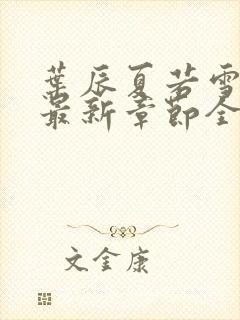 葉辰夏若雪
最新章節全
文金康